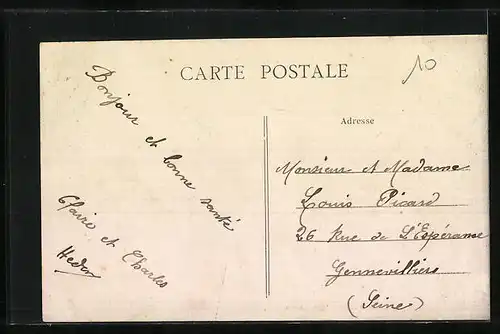 CARTE POSTALE
10
Bonjour et bonne santé
Claire et Charles
Adresse
Monsieur et Madame
Louis Picard
26 Rue de L'Espérance
Gennevilliers
(Seine)